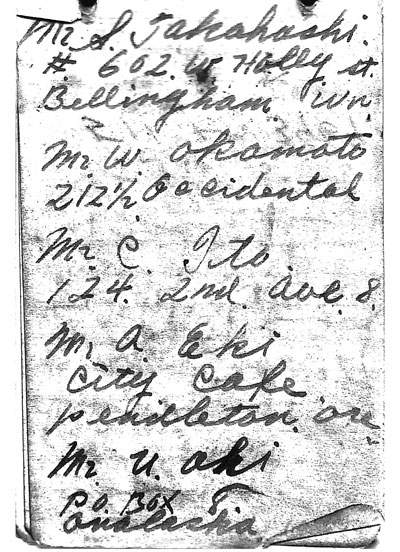 Mr S. Takahashi.
# 602. W Holly st.
Bellingham Wn
Mr W. Okamoto
212½ Occidental
Mr C. Ito
124. 2nd. ave. S.
Mr A. Eki
City Cafe
pendleton. ore
Mr U. Oki
P.O. Box
Onalaska